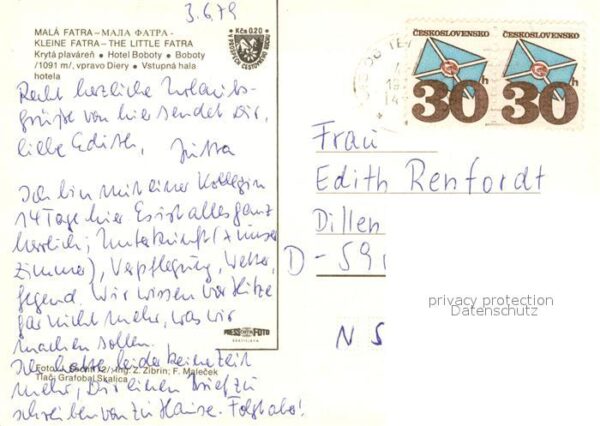 3.6.79
MALÁ FATRA – МАЛА ФАТРА –
KLEINE FATRA – THE LITTLE FATRA
Krytá plaváreň • Hotel Boboty • Boboty
/1091 m/, vpravo Diery • Vstupná hala
hotela
Kčs 0,20
ČESKOSLOVENSKO
30h
ČESKOSLOVENSKO
30h
Recht herzliche Urlaubs-
grüße von hier sendet dir,
liebe Edith, Jutta
Ich bin mit einer Kollegin
14 Tage hier. Es ist alles ganz
herrlich; Unterkunft ( unser
Zimmer), Verpflegung, Wetter,
Gegend. Wir wissen vor Hitze
gar nicht mehr, was wir
machen sollen.
Ich hatte leider keine Zeit
mehr, Dir einen Brief zu
schreiben von zu Hause. Folgt aber!
Ing. Z. Zibrin; F. Maleček
Tlač: Grafobal Skalica
PRESSFOTO
BRATISLAVA
Frau
Edith Renfordt
Dillen
D - 591
N S
privacy protection
Datenschutz